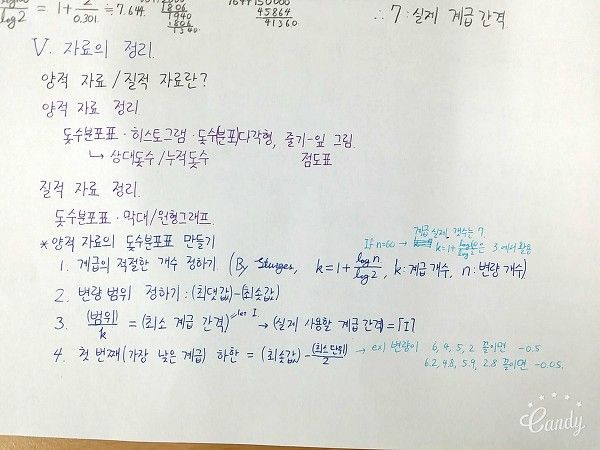 log2 = 1 + 2/0.301 ≒ 7.644.
1806
1940
1806
1340
45864
41360
∴ 7 : 실제 계급 간격
V. 자료의 정리.
양적 자료 / 질적 자료란?
양적 자료 정리
돗수분포표 · 히스토그램 · 돗수(분포)다각형, 줄기-잎 그림.
↳ 상대돗수 / 누적돗수 점도표
질적 자료 정리.
돗수분포표 · 막대/원형그래프.
계급 실제 갯수는 7.
If n=60 → k=1+logn/log2은 3에서 활용
* 양적 자료의 돗수분포표 만들기
1. 계급의 적절한 개수 정하기 (By Sturges, k=1+log n/log 2, k:계급 개수, n:변량 개수)
2. 변량 범위 정하기 : (최댓값)-(최솟값)
3. (범위)/k = (최소 계급 간격) let I → (실제 사용할 계급 간격 = ⌈I⌉
4. 첫 번째(가장 낮은 계급) 하한 = (최솟값) - (최소 단위)/2 → ex) 변량이 6, 4, 5, 2 꼴이면 -0.5
6.2, 4.8, 5.9, 2.8 꼴이면 -0.05.
Candy